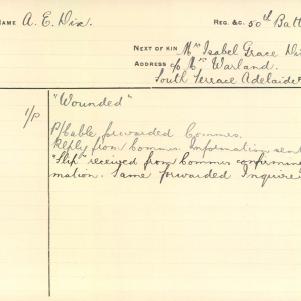 NAME A. E. Dix.
REG. &C. 50th Batt
NEXT OF KIN Mrs Isabel Grace Di
ADDRESS c/o Mrs Warland.
South Terrace Adelaide
1/P "Wounded"
P/Cable forwarded Commrs.
Reply from Commrs. Information sent
"Slip" received from Commrs confirming
mation. Same forwarded Inquirer